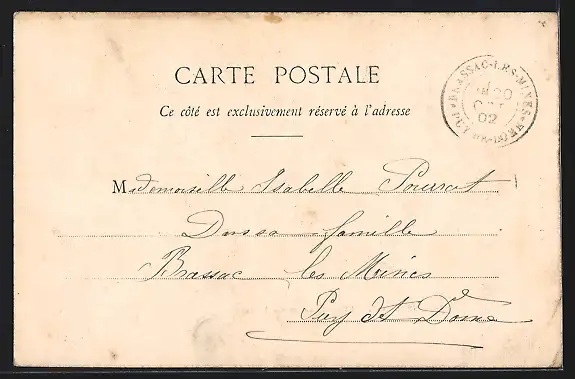 CARTE POSTALE
Ce côté est exclusivement réservé à l'adresse
BRASSAC-LES-MINES
02
Mademoiselle Isabelle Pourrat
famille
Brassac les Mines
Puy de Dôme